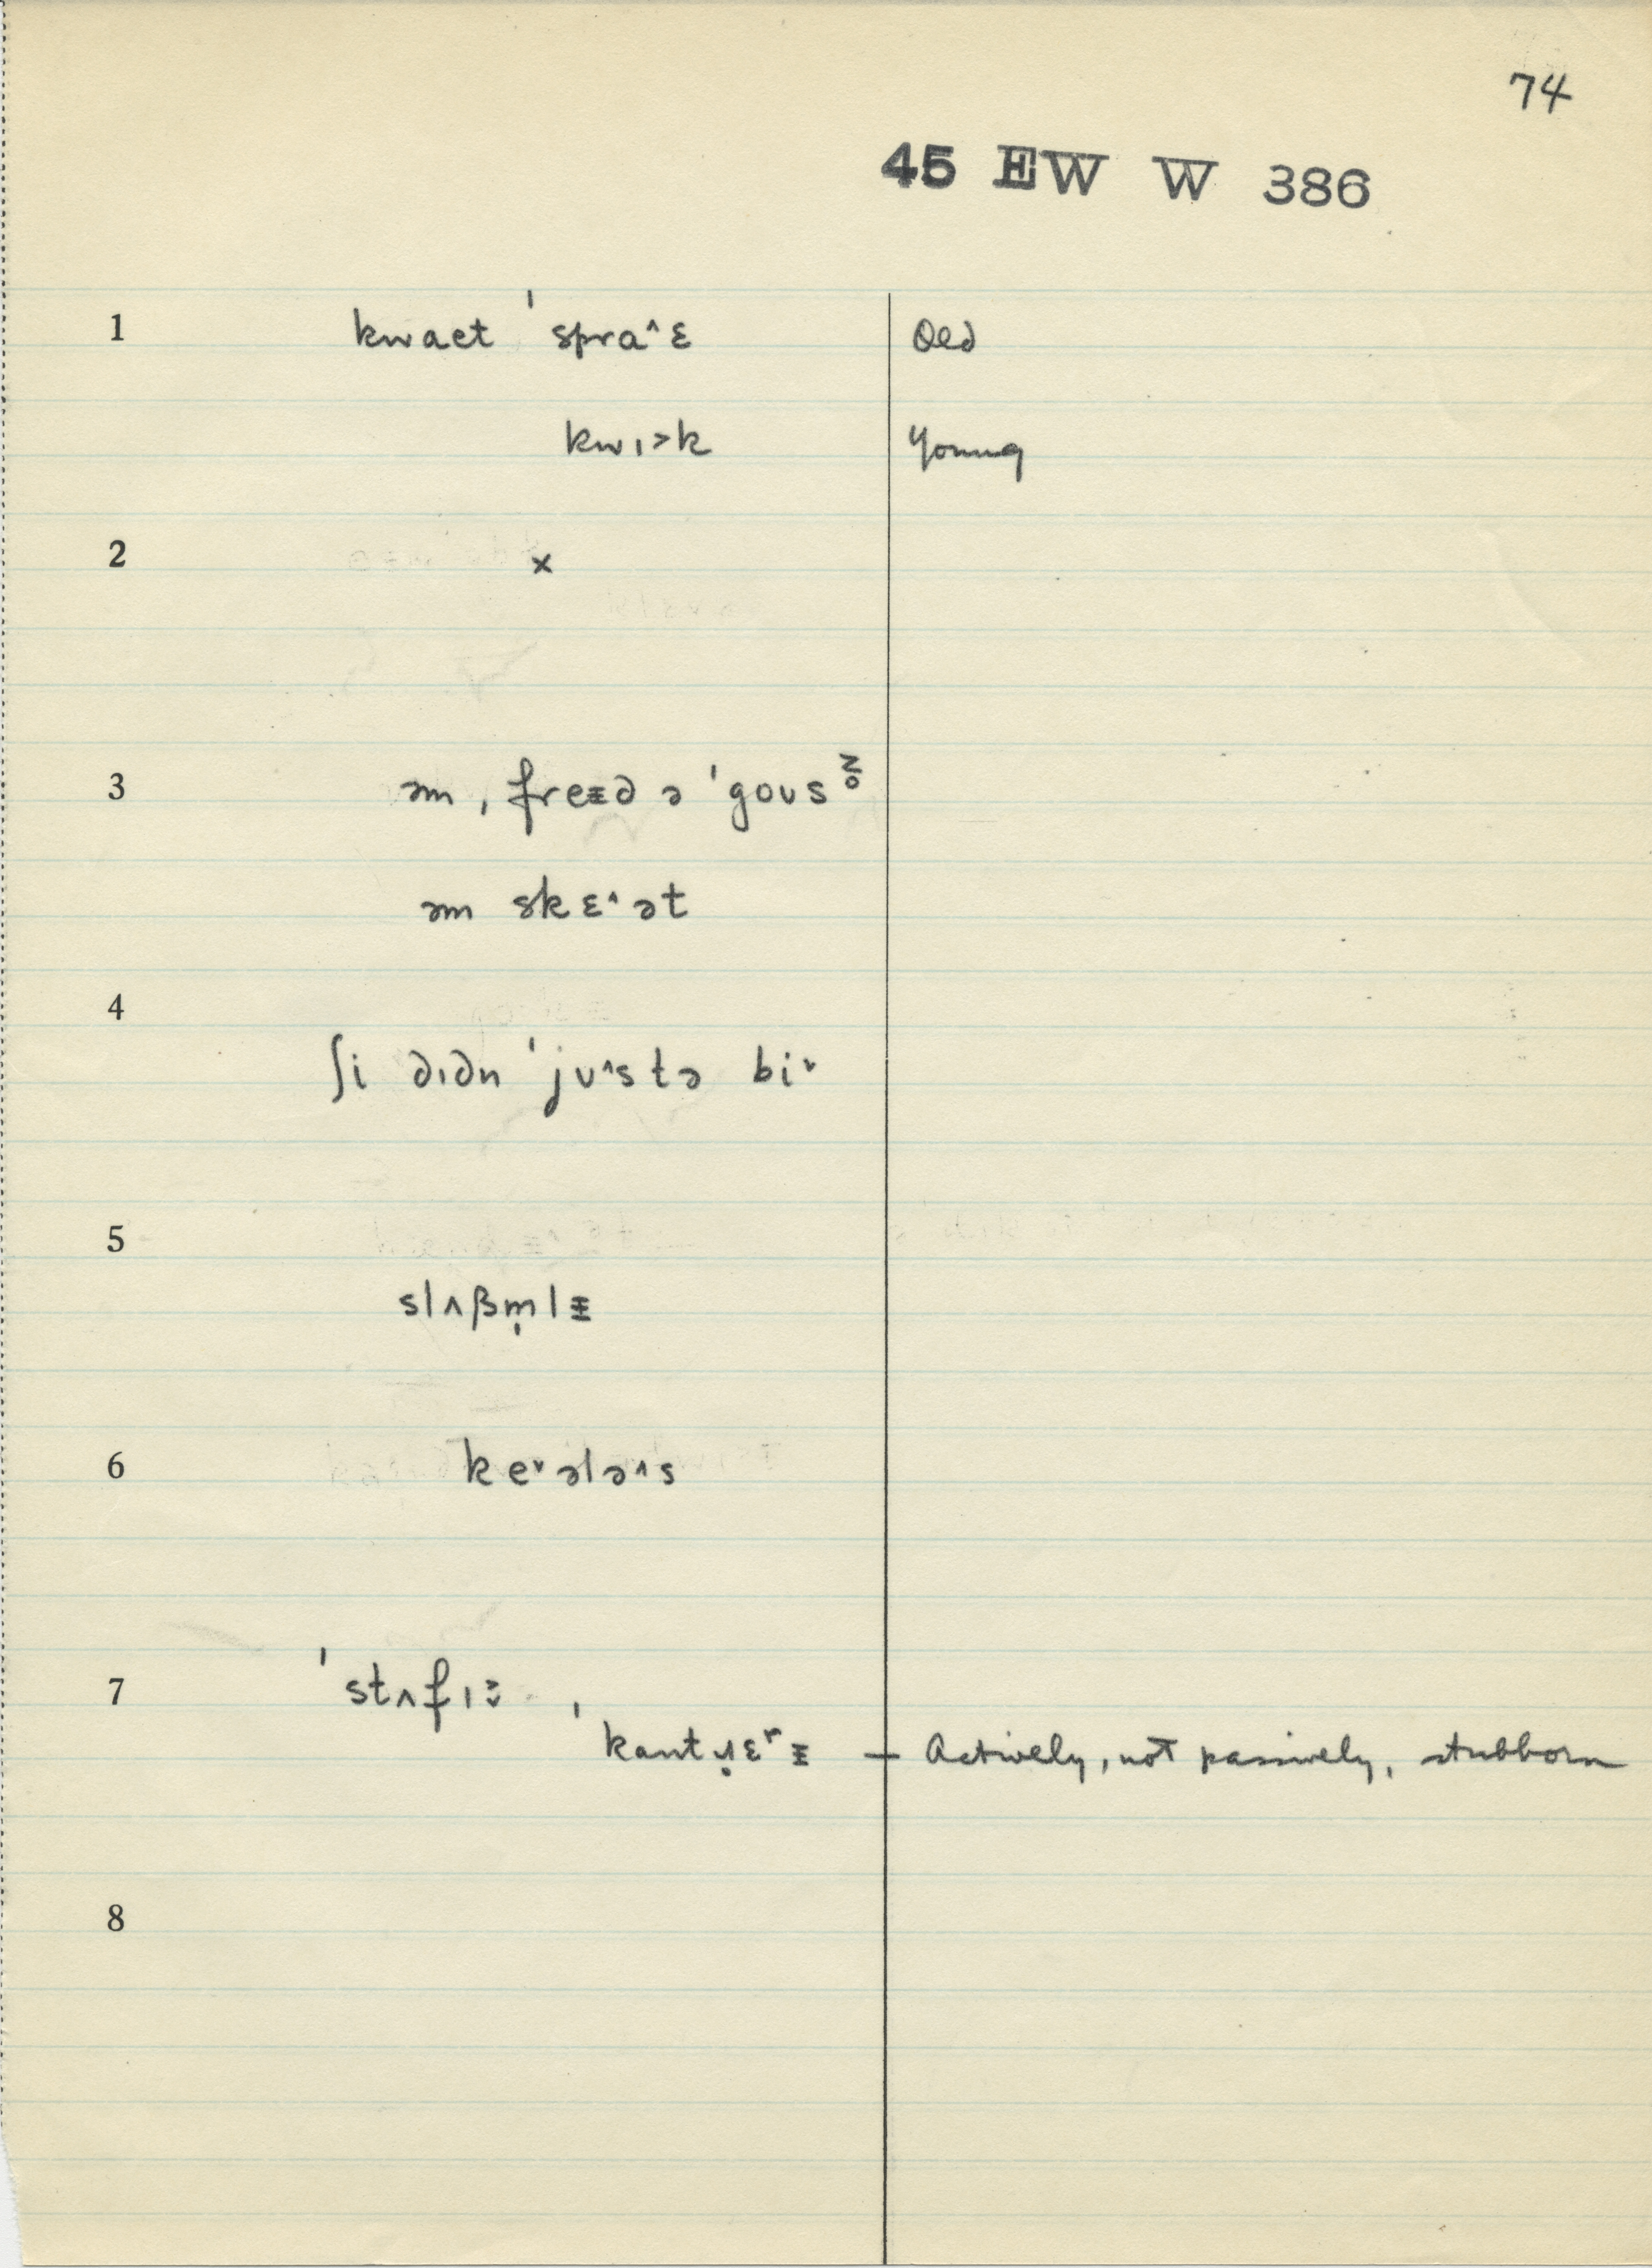 74
45 EW W 386
1 kwaet ˈspraˆɛ Old
kwɪ˃k Young
2 ×
3 əm ˌfreɪ̵d ə ˈgoʊs
əm skɛˆət
4
ʃi dɪdn ˈjʊˆstə biˇ
5
slʌβm̩lɪ̵
6 keˇələˆs
7 ˈstʌfɪ
ˈkant ɛʳɪ̵ — Actively, not passively, stubborn
8